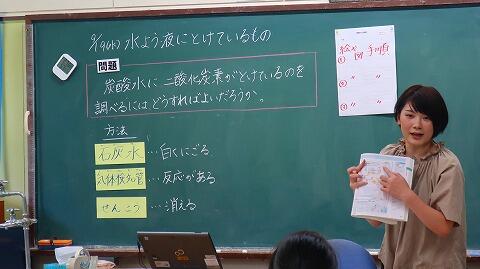 9/9(水) 水よう夜にとけているもの
問題
炭酸水に二酸化炭素がとけているのを
調べるにはどうすればよいだろうか。
方法
石灰水…白くにごる
気体検知管…反応がある
せんこう…消える
絵や図 手順
①
〃 〃
②
〃 〃
③